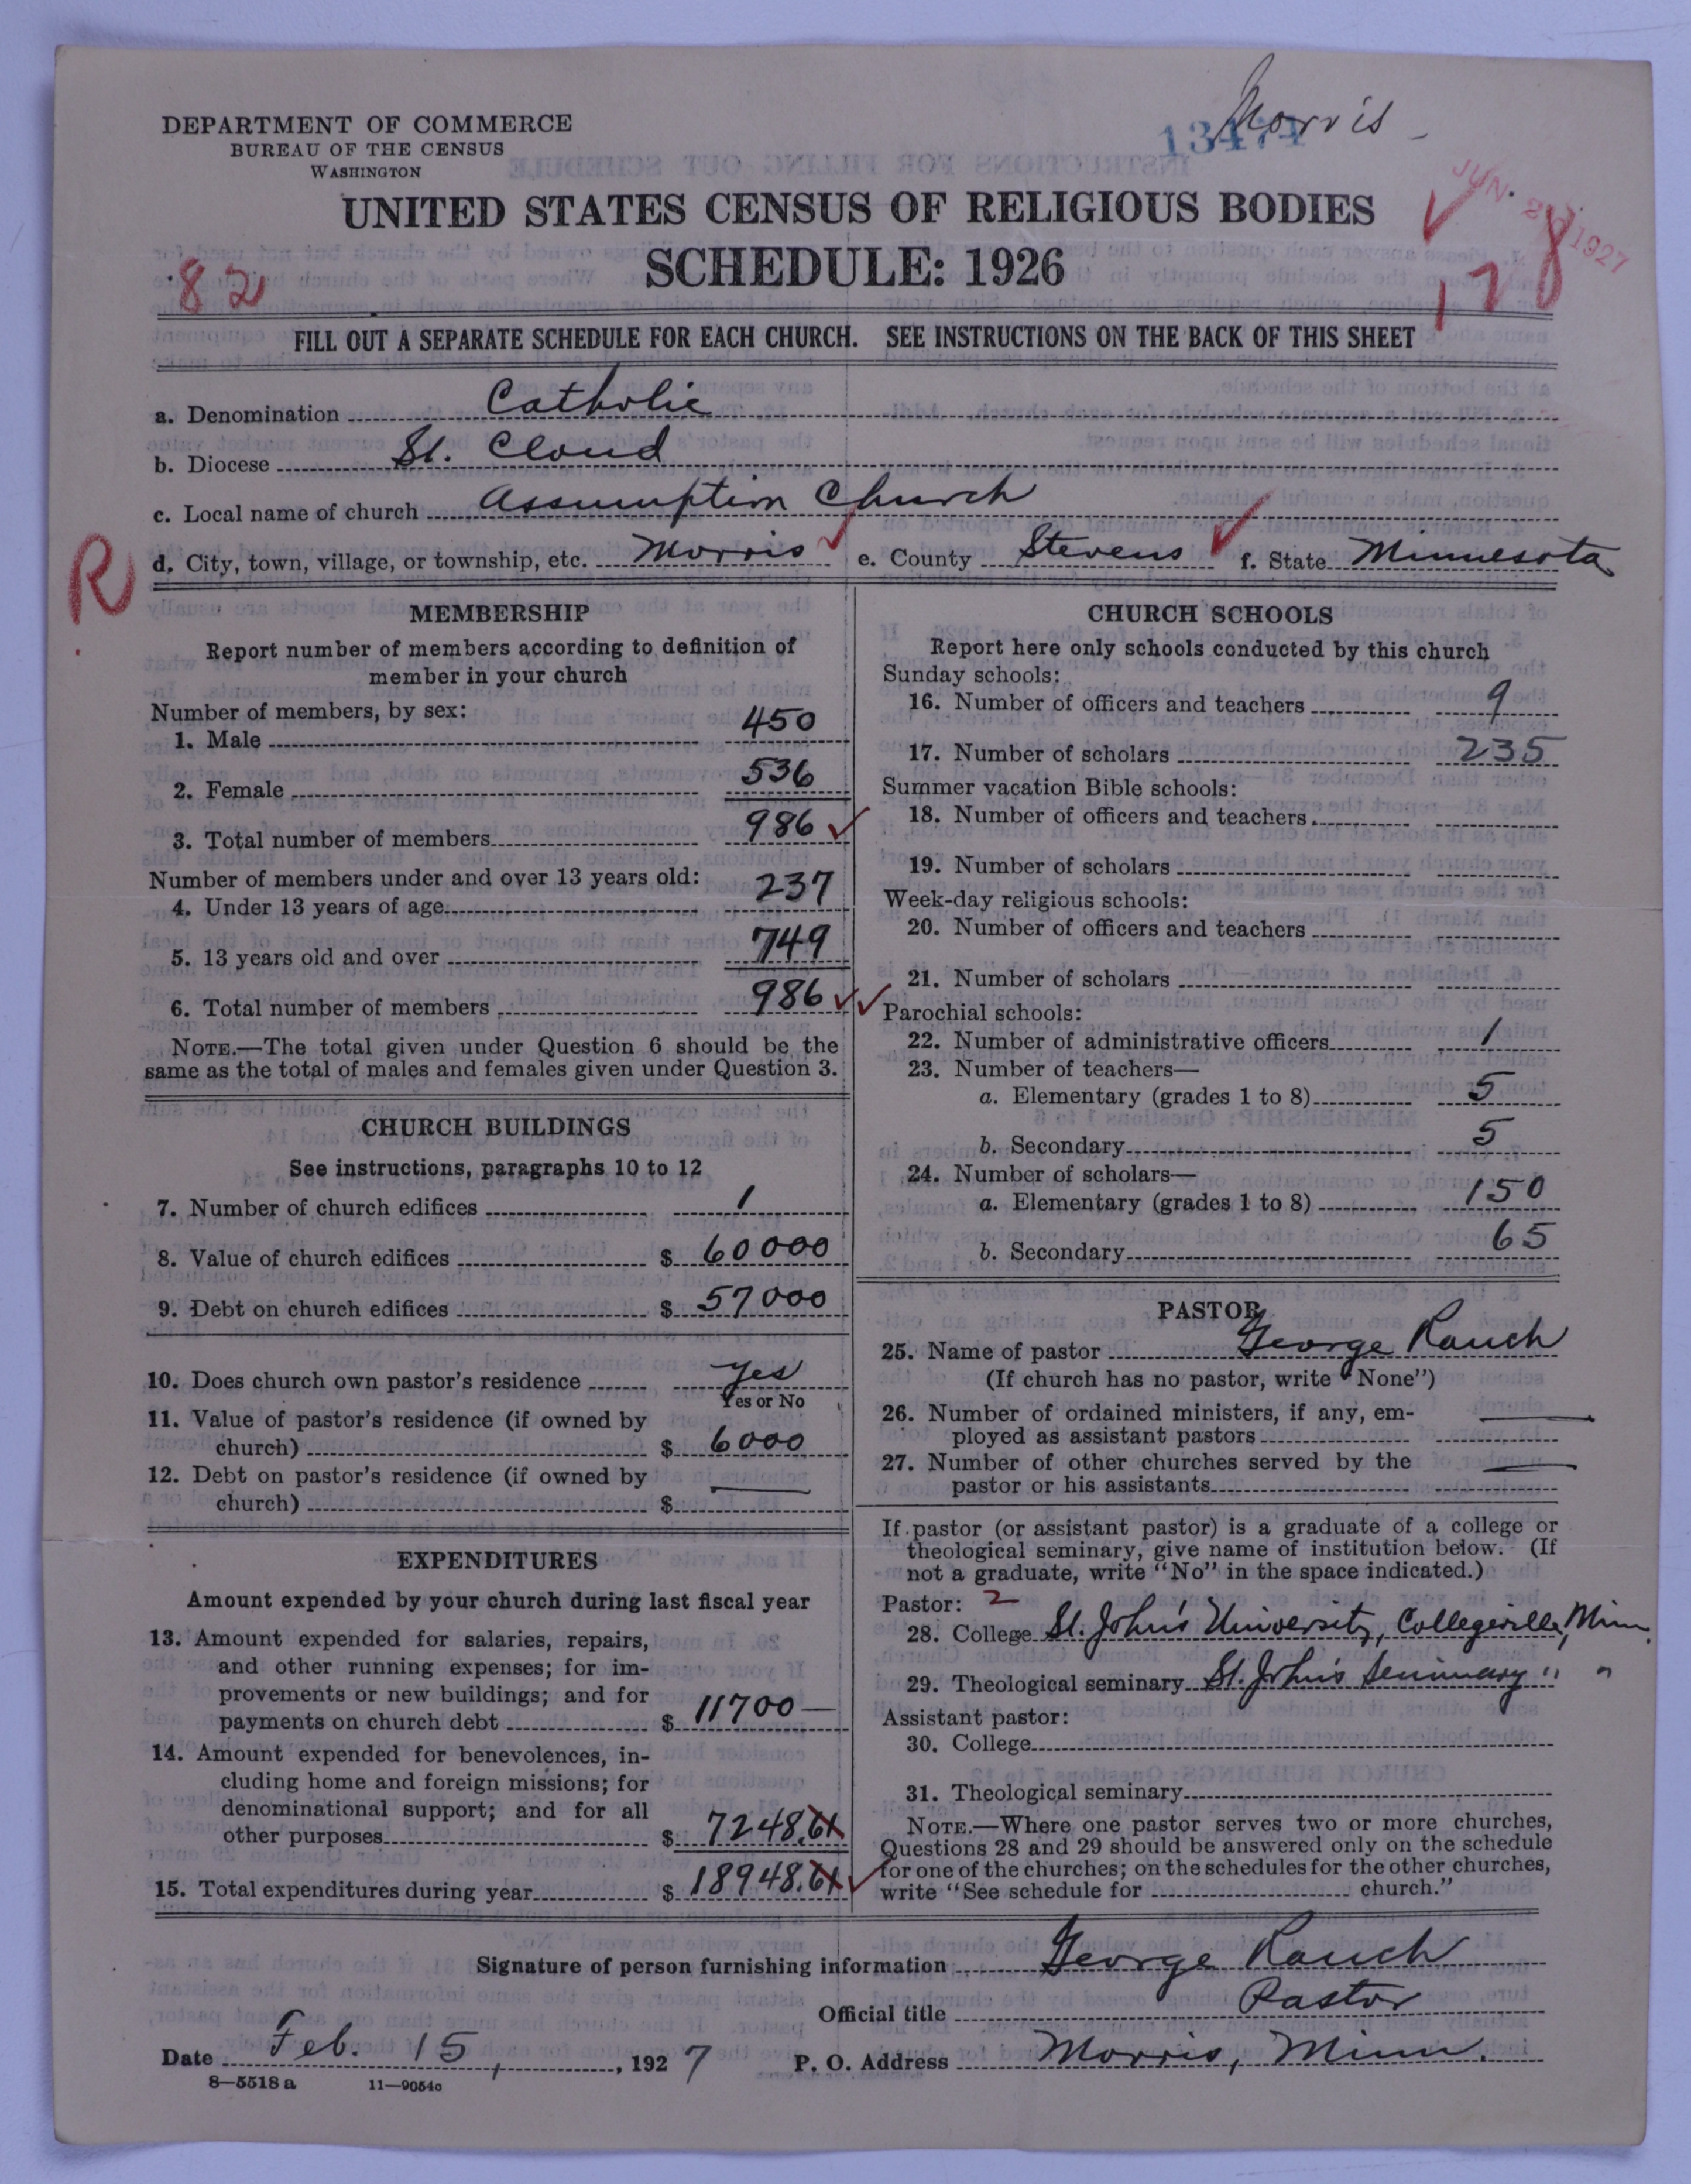 Morris
13474
DEPARTMENT OF COMMERCE
BUREAU OF THE CENSUS
WASHINGTON
UNITED STATES CENSUS OF RELIGIOUS BODIES
SCHEDULE: 1926
82
178
FILL OUT A SEPARATE SCHEDULE FOR EACH CHURCH. SEE INSTRUCTIONS ON THE BACK OF THIS SHEET
a. Denomination Catholic
b. Diocese St. Cloud
c. Local name of church Assumption Church
R
d. City, town, village, or township, etc. Morris e. County Stevens f. State Minnesota
MEMBERSHIP
Report number of members according to definition of
member in your church
Number of members, by sex:
1. Male 450
2. Female 536
3. Total number of members 986
Number of members under and over 13 years old:
4. Under 13 years of age 237
5. 13 years old and over 749
6. Total number of members 986
NOTE.—The total given under Question 6 should be the
same as the total of males and females given under Question 3.
CHURCH BUILDINGS
See instructions, paragraphs 10 to 12
7. Number of church edifices 1
8. Value of church edifices $ 60000
9. Debt on church edifices $ 57000
10. Does church own pastor's residence Yes
Yes or No
11. Value of pastor's residence (if owned by
church) $ 6000
12. Debt on pastor's residence (if owned by
church) $ —
EXPENDITURES
Amount expended by your church during last fiscal year
13. Amount expended for salaries, repairs,
and other running expenses; for im-
provements or new buildings; and for
payments on church debt $ 11700—
14. Amount expended for benevolences, in-
cluding home and foreign missions; for
denominational support; and for all
other purposes $ 7248.61
15. Total expenditures during year $ 18948.61
CHURCH SCHOOLS
Report here only schools conducted by this church
Sunday schools:
16. Number of officers and teachers 9
17. Number of scholars 235
Summer vacation Bible schools:
18. Number of officers and teachers
19. Number of scholars
Week-day religious schools:
20. Number of officers and teachers
21. Number of scholars
Parochial schools:
22. Number of administrative officers 1
23. Number of teachers—
a. Elementary (grades 1 to 8) 5
b. Secondary 5
24. Number of scholars—
a. Elementary (grades 1 to 8) 150
b. Secondary 65
PASTOR
25. Name of pastor George Rauch
(If church has no pastor, write "None")
26. Number of ordained ministers, if any, em-
ployed as assistant pastors —
27. Number of other churches served by the
pastor or his assistants —
If pastor (or assistant pastor) is a graduate of a college or
theological seminary, give name of institution below. (If
not a graduate, write "No" in the space indicated.)
Pastor: 2
28. College St. John's University, Collegeville, Minn.
29. Theological seminary St. John's Seminary " "
Assistant pastor:
30. College
31. Theological seminary
NOTE.—Where one pastor serves two or more churches,
Questions 28 and 29 should be answered only on the schedule
for one of the churches; on the schedules for the other churches,
write "See schedule for church."
Signature of person furnishing information George Rauch
Official title Pastor
Date Feb. 15, 1927 P. O. Address Morris, Minn.
8—5518 a 11—9054c